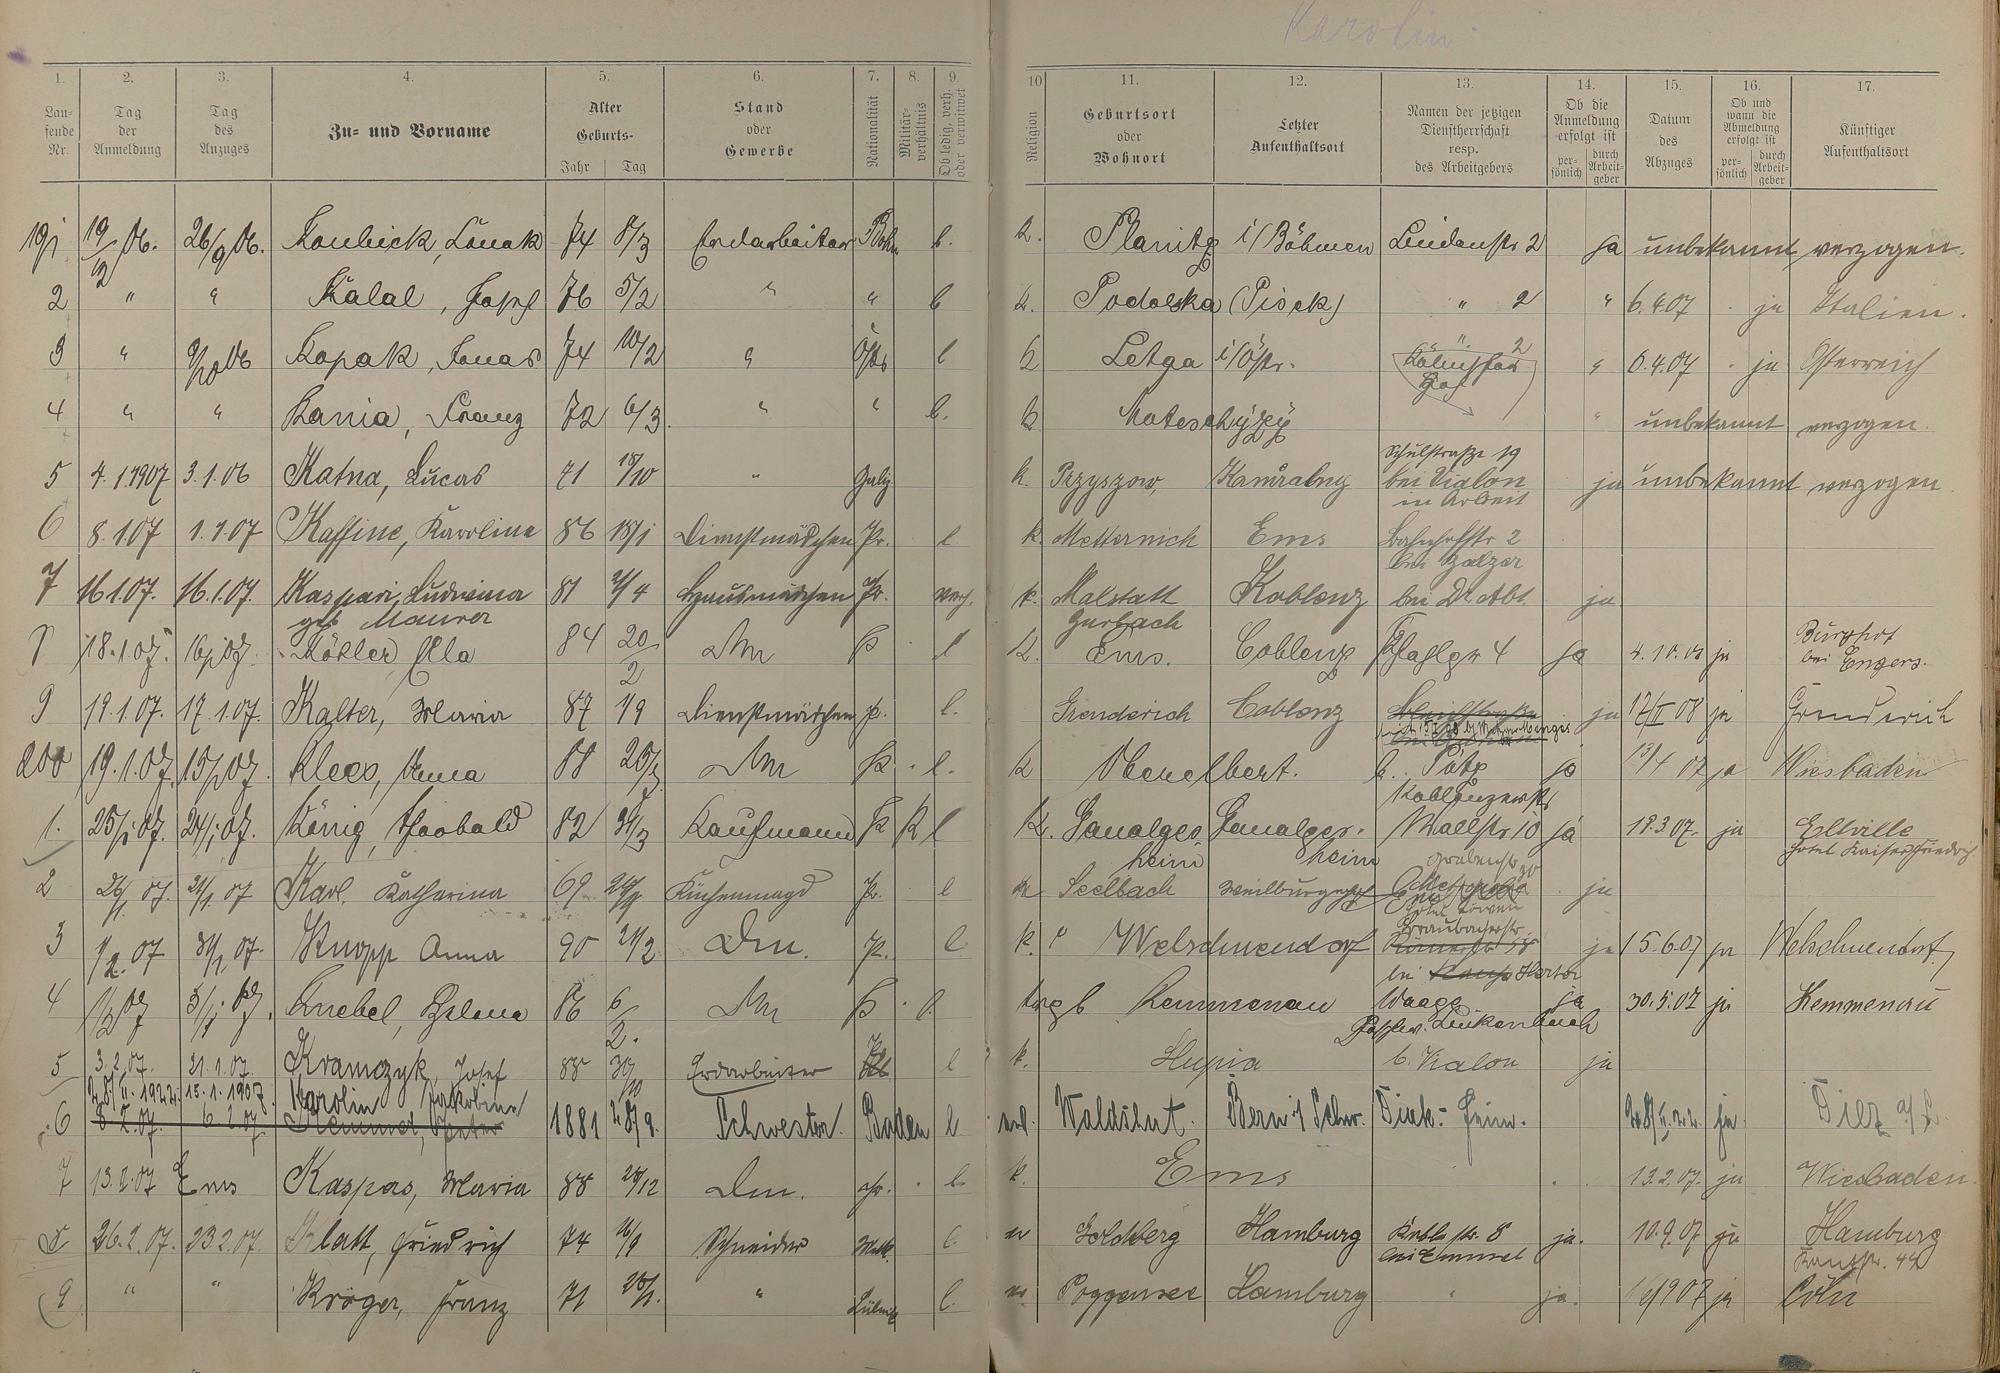 Karolin
1. 2. 3. 4. 5. 6. 7. 8. 9. 10 11. 12. 13. 14. 15. 16. 17.
Laufende Nr. Tag der Anmeldung Tag des Anzuges Zu- und Vorname Alter Geburts- Jahr Tag Stand oder Gewerbe Nationalität Militärverhältnis Ob ledig, verh. oder verwitwet Religion Geburtsort oder Wohnort Letzter Aufenthaltsort Namen der jetzigen Dienstherrschaft resp. des Arbeitgebers Ob die Anmeldung erfolgt ist persönlich durch Arbeitgeber Datum des Abzuges Ob und wann die Abmeldung erfolgt ist persönlich durch Arbeitgeber Künftiger Aufenthaltsort
191 19/12 06. 26/9 06. 74 8/3 Erdarbeiter Böhm l. K. Planitz i/Böhmen Lindenstr 2 ja unbekannt verzogen.
2 " " Kalal, Josef 76 5/2 " " l K. Podolska (Pisek) " 2 " 6.4.07 ja Italien.
3 " 9/10 06 Kopak, Jonas 74 10/2 " Östr l K Letga i/Östr. " " 2 " 6.4.07 ja Österreich
4 " " Kania, Franz 72 6/3. " " l. K " unbekannt verzogen.
5 4.1.1907 3.1.06 Katna, Lucas 71 18/10 " Galiz K. Przyszow, Schulstraße 19 bei Vialon in Arbeit ja unbekannt verzogen
6 8.1.07 1.1.07 Kaffine, Karoline 86 18/1 Dienstmädchen Pr. l K. Metternich Ems Bahnhofstr 2 bei Balzer
7 16.1.07. 16.1.07. Kaspari, Ludwina geb Maurer 81 2/4 Hausmädchen Pr. verh. K. Malstatt Burbach Koblenz bei Dr. Abt ja
8 18.1.07. 16/1 07. Köhler, Ella 84 20/2 Dm P l K. Ems. Coblenz 4 ja 4.10.01 ja Burghof bei Engers.
9 19.1.07. 17.1.07. Kalter, Maria 87 1/9 Dienstmädchen p. l. Grenderich Coblenz ja 17/II 08 ja Grenderich
200 19.1.07. 15/1 07. Klees, Anna 88 25/7 Dm Pr. l. K Obenelbert. b. Pütz ja 13/4 07 ja Wiesbaden
1. 25/1 07. 24/1 07. König, Theobald 82 31/3 Kaufmann Pr K l K. Ganalgesheim Ganalgesheim Koblenzerstr Wallstr 10 ja 18.3.07. ja Eltville Hotel Kaiser Friedrich
2 26/1. 07. 24/1 07 Karl, Katharina 69 29/9 Küchenmagd Pr. l Seelbach Weilburg Grabenstr 20 ja
3 1/2.07 31/1.07. Knopp Anna 90 21/2 Dm. Pr. l K. Welschnendorf Braubacherstr. bei Herter ja 15.6.07 ja Welschnendorf
4 1/2 07 Knebel, Helene 86 6/2. Dm P l. evgl Kemmenau Waage ja 30.5.07 ja Kemmenau
5 3.2.07. 21.1.07. Kramczyk, Josef 88 30/10 Erdarbeiter l K. Hupia b. Vialon ja
6 28/II.1922. 15.1.1907. Karolin Jakobine 8.2.07. 6.2.07 Kemmer, Peter 1881 28/9. Schwester. Baden l evl. Waldshut. Bern i/Schw. Diak.-Heim. 28/II.22 ja Diez a/L
7 13.2.07 Ems Kaspas, Maria 88 28/12 Dm. pr. l. K. Ems 13.2.07. ja Wiesbaden.
8 26.2.07. 23.2.07. Klatt, Friedrich 74 16/9 Schneider Meckl. l. ev Goldberg Hamburg Koblstr. 8 bei Emmel ja. 10.9.07 ja Hamburg
9 " " Kröger, Franz 71 28/1. " Lübeck l. ev. Poggensee Hamburg " ja. 1/9 07 ja Cöln